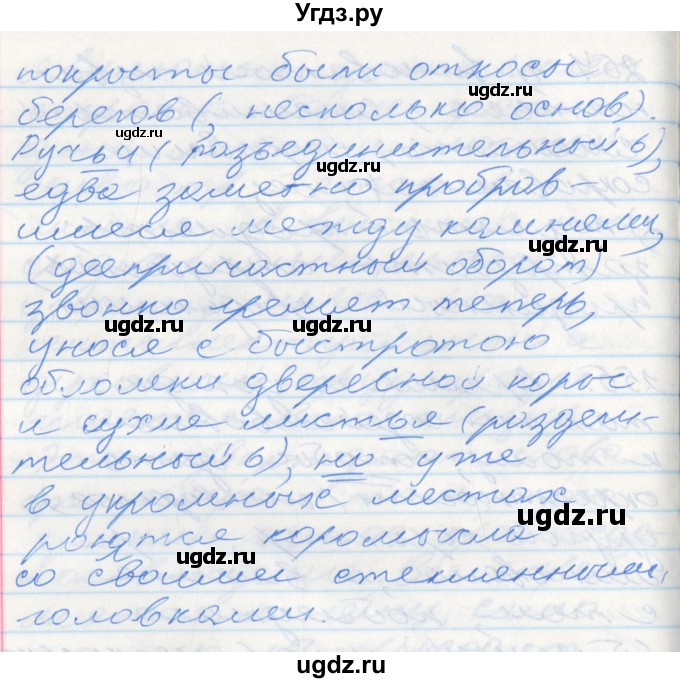 Угдз.ру
покрыты были откосы
берегов (, несколько основ).
Ручьи (разъединительный ь),
едва заметно пробрав-
шиеся между камнями,
(деепричастный оборот)
звонко гремят теперь,
унося с быстротою
обломки двересной коры
и сухие листья (раздели-
тельный ь), но уже
в укромных местах
роются коромысла
со своими стеклянными,
головками.
ugdz.ru
ugdz.ru
ugdz.ru
ugdz.ru
ugdz.ru
ugdz.ru
ugdz.ru
ugdz.ru
ugdz.ru
ugdz.ru